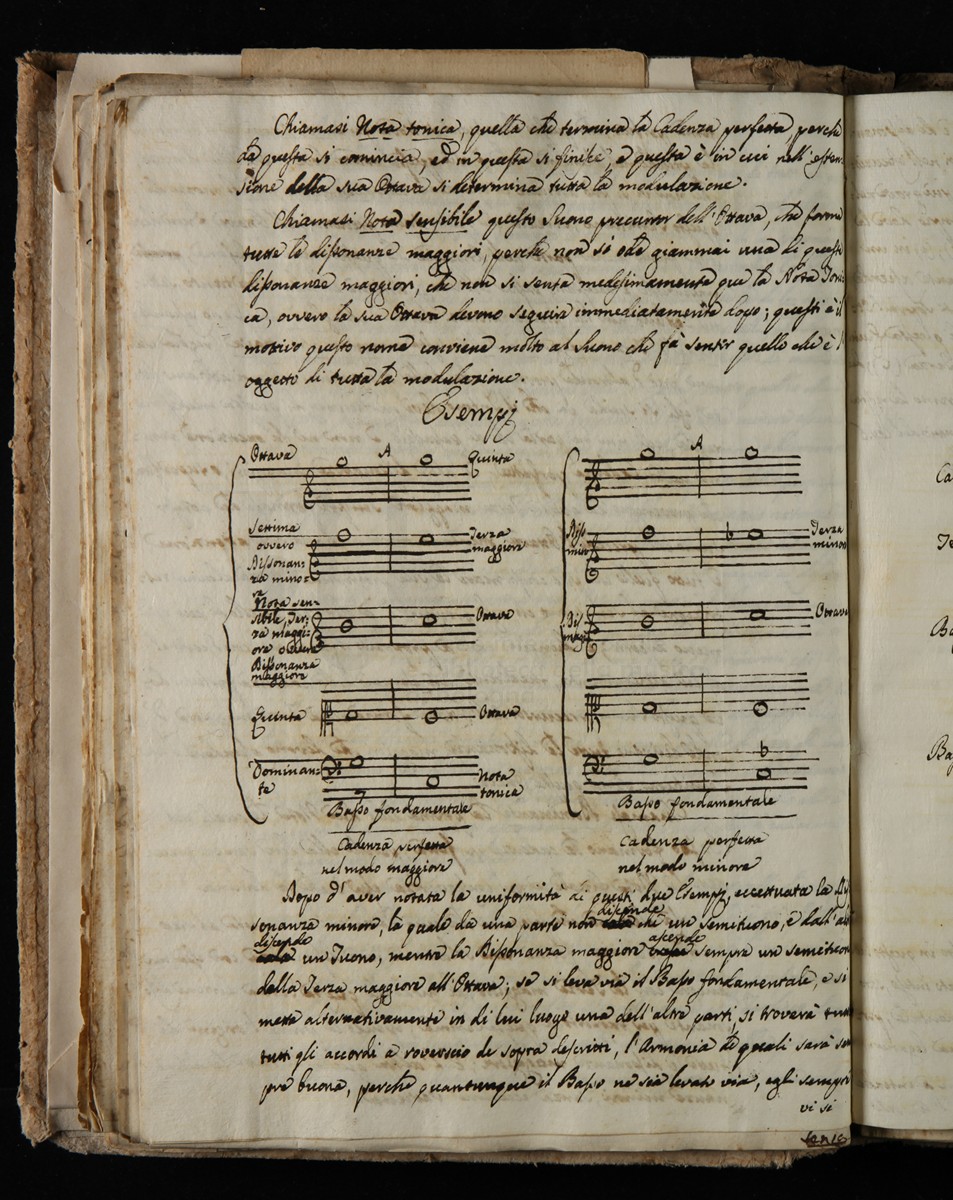 Chiamasi Nota tonica, quella che termina la Cadenza perfetta perchè
da questa si comincia, ed in questa si finisce, e questa è in cui nell'esten-
sione della sua Ottava si determina tutta la modulazione.
Chiamasi Nota sensibile questo Suono precursor dell'Ottava, che forma
tutte le dissonanze maggiori, perchè non si ode giammai una di queste
dissonanze maggiori, che non si senta medesimamente que la Nota Toni
ca, ovvero la sua Ottava devono seguir immediatamente dopo; questi è il
motivo questo nome conviene molto al Suono che fà sentir quello che è l'
oggetto di tutta la modulazione.
Esempj
Ottava A Quinta
Settima
ovvero
Dissonan-
za mino-
re
Terza
maggiore
Nota sen-
sibile, Ter-
za maggi-
ore ovvero
Dissonanza
maggiore
Ottava
Quinta Ottava
Dominan-
te
Nota
tonica
7
Basso fondamentale
Cadenza perfetta
nel modo maggiore
A
Diss
min
Terza
minore
Dis
magg
Ottava
Basso fondamentale
Cadenza perfetta
nel modo minore
Dopo d'aver notata la uniformità di questi due Esempj, eccettuata la Dis
sonanza minore, la quale da una parte non discende che un semituono, e dall'al
discende un Tuono, mentre la Dissonanza maggiore ascende sempre un semituon
della Terza maggiore all'Ottava; se si leva via il Basso fondamentale, e si
mette alternativamente in di lui luogo una dell'altre parti, si troverà tutt
tutti gli accordi a rovescio de sopra descritti, l'Armonia de quali sarà sem
pre buona, perchè quantunque il Basso ne sia levato via, egli sempre
vi si
Ca
Te
Ba
Ba